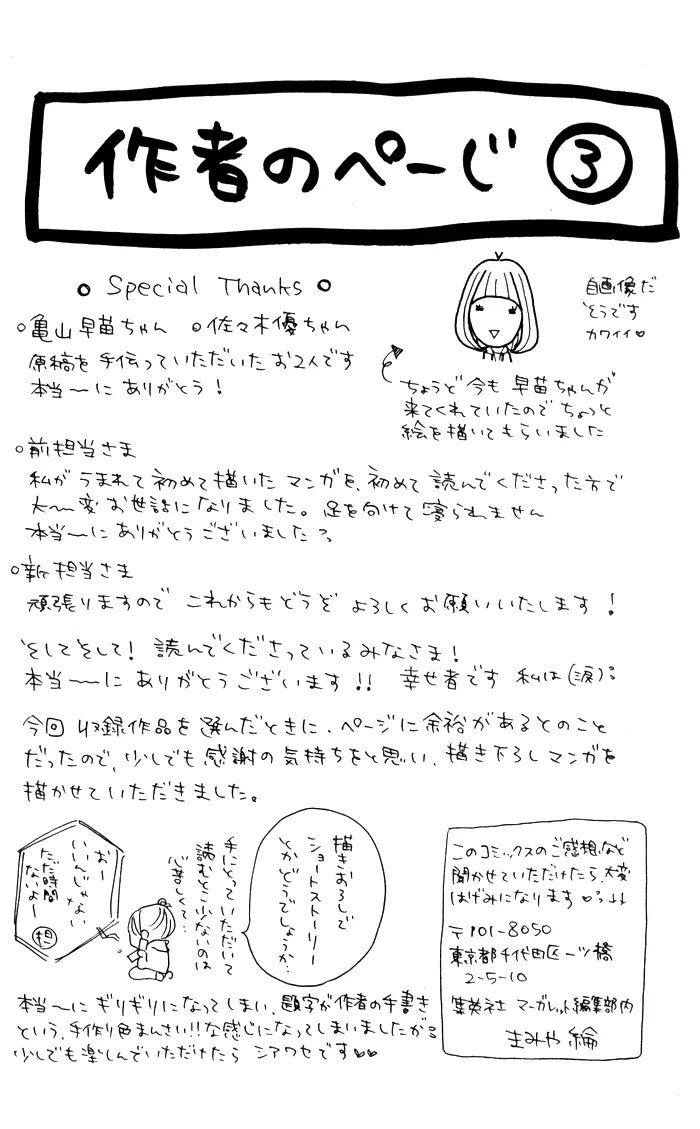 作者のぺーじ ③
Special Thanks
○亀山早苗ちゃん ○佐々木優ちゃん
原稿を手伝っていただいたお2人です
本当〜にありがとう！
自画像だ
そうです
カワイイ♡
ちょうど今も早苗ちゃんが
来てくれていたのでちょっと
絵を描いてもらいました
○前担当さま
私がうまれて初めて描いたマンガを、初めて読んでくださった方で
大〜変お世話になりました。足を向けて寝られません
本当〜にありがとうございました
○新担当さま
頑張りますので これからもどうぞ よろしくお願いいたします！
そしてそして！ 読んでくださっているみなさま！
本当〜にありがとうございます!! 幸せ者です 私は(涙)
今回 収録作品を選んだときに、ページに余裕があるとのこと
だったので、少しでも感謝の気持ちをと思い、描き下ろしマンガを
描かせていただきました。
描きおろしで
ショートストーリー
とかどうでしょうか…
手にとっていただいて
読むとこ少ないのは
心苦しくて…
おー
いいんじゃない
ただ時間
ないよー
担
本当〜にギリギリになってしまい、題字が作者の手書き
という、手作り色まんさい!!な感じになってしまいましたが
少しでも楽しんでいただけたら シアワセです♡♡
このコミックスのご感想など
聞かせていただけたら、大変
はげみになります♡
〒101-8050
東京都千代田区一ツ橋
2-5-10
集英社 マーガレット編集部内
まみや 綸